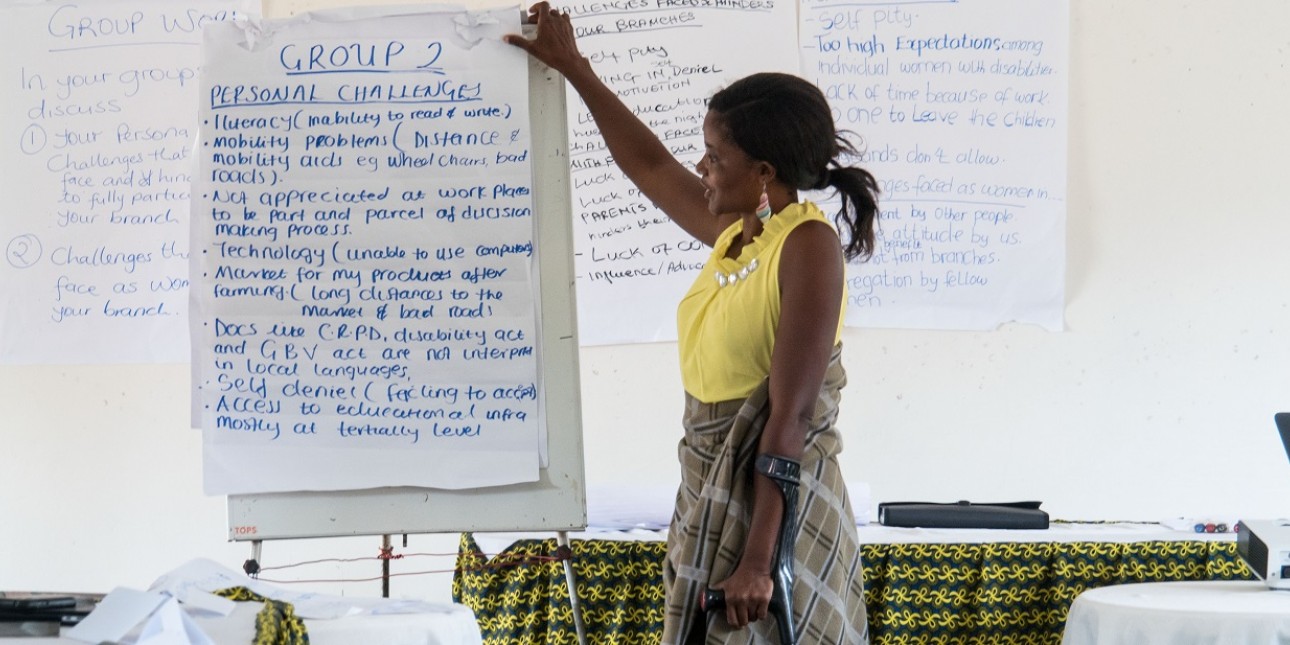 GROUP WO
In your group
discuss
① Your Persona
Challenges that
face and of hind
to fully partic
your branch
② Challenges th
face as wom
your branch.
GROUP 2
PERSONAL CHALLENGES
• Iluteracy (inability to read & write.)
• Mobility problems ( Distence &
mobility aids eg wheel chairs, bad
roads).
• Not appreciated at work places
to be part and parcel of ducision
making process.
• Technology ( unable to use computers)
• Market for my products after
farming. ( long distances to the
market & bad roads
• Docs like C.R.P.D, disability act
and G B V act are not interpret
in local languages,
• Self deniel ( failing to accept)
• Access to educational infra
mostly at tertially level
TOPS
CHALLENGES FACED & HINDERS
OUR BRANCHES
Self pity
VING IN, Deniel
MOTIVATION
Luck
Luck of
PARENTS
hinders the
- Luck of co
- Influence/Advoc
- Self pity.
- Too high Expectations among
individual women with disabilities.
ack of time because of work.
o one to Leave the Children
ands don't allow.
nges faced as women in
ent by other people.
e attitude by us.
benefit
not from branches.
regation by fellow
men.